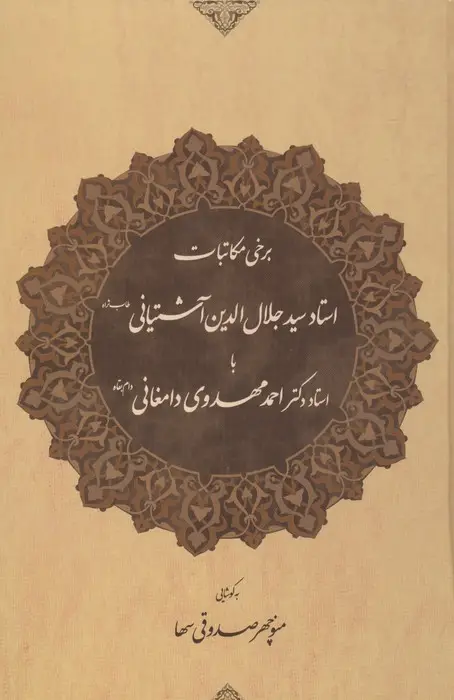 برخی مکاتبات
استاد سید جلال الدین آشتیانی طاب ثراه
با
استاد دکتر احمد مهدوی دامغانی دام بقاه
به کوشش
منوچهر صدوقی سها